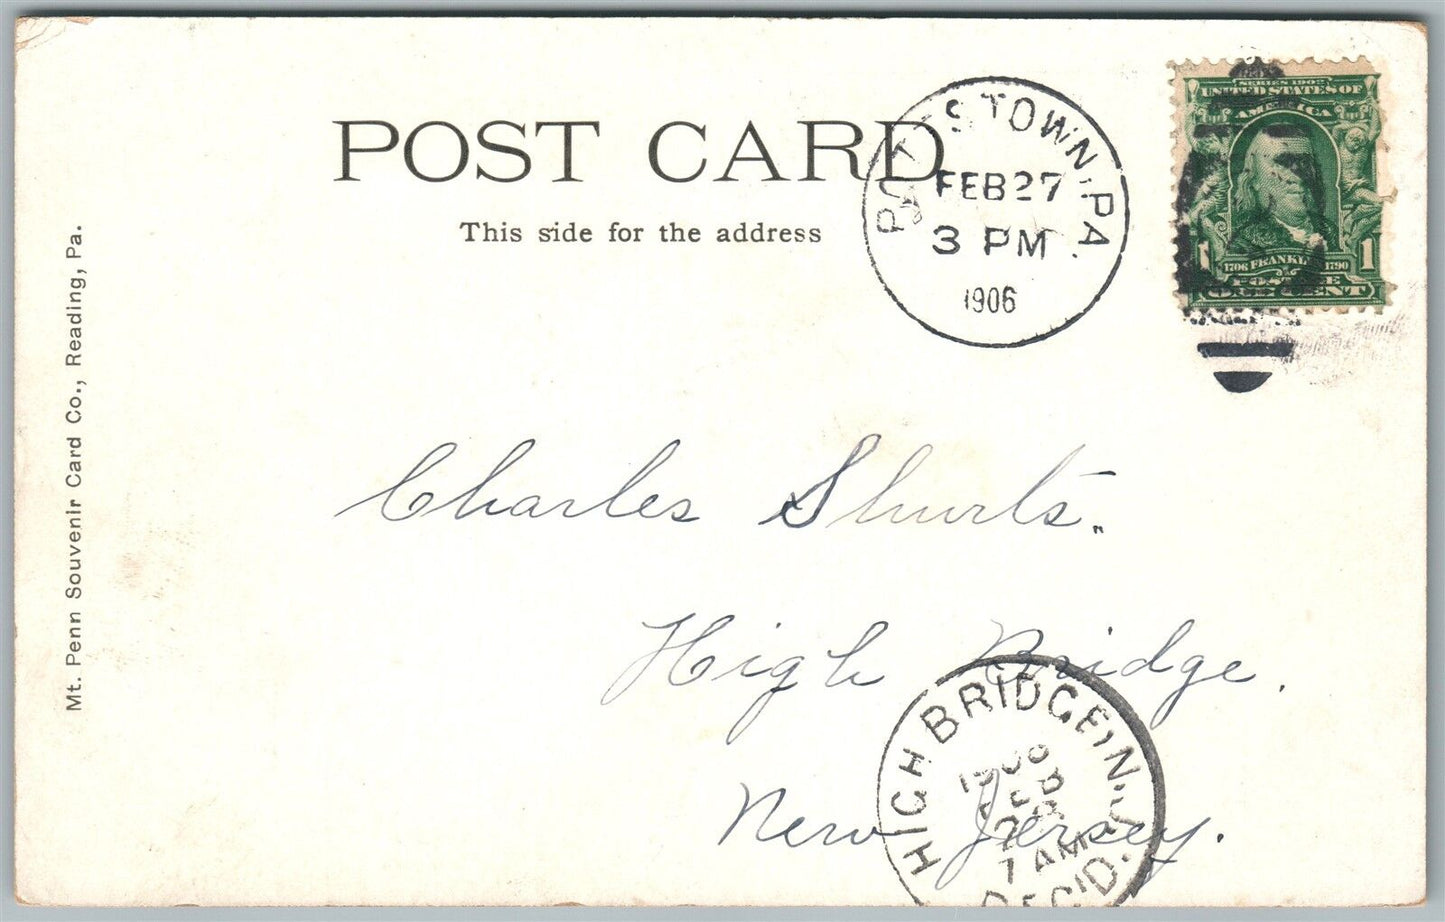 POST CARD
This side for the address
POTTSTOWN, PA.
FEB 27
3 PM
1906
SERIES 1902
UNITED STATES OF
AMERICA
1706 FRANKLIN 1790
POSTAGE
1 1
ONE CENT
Mt. Penn Souvenir Card Co., Reading, Pa.
Charles Shurts.
High Bridge.
New Jersey.
HIGH BRIDGE, N.J.
1906
FEB
28
7 AM
REC'D.